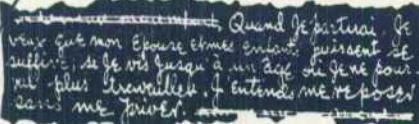 Quand Je partirai, Je
veux que mon Epouse et mes enfants puissent se
suffire, si Je vis jusqu'à un âge où Je ne pour-
rai plus travailler. J'entends me reposer
sans me priver.